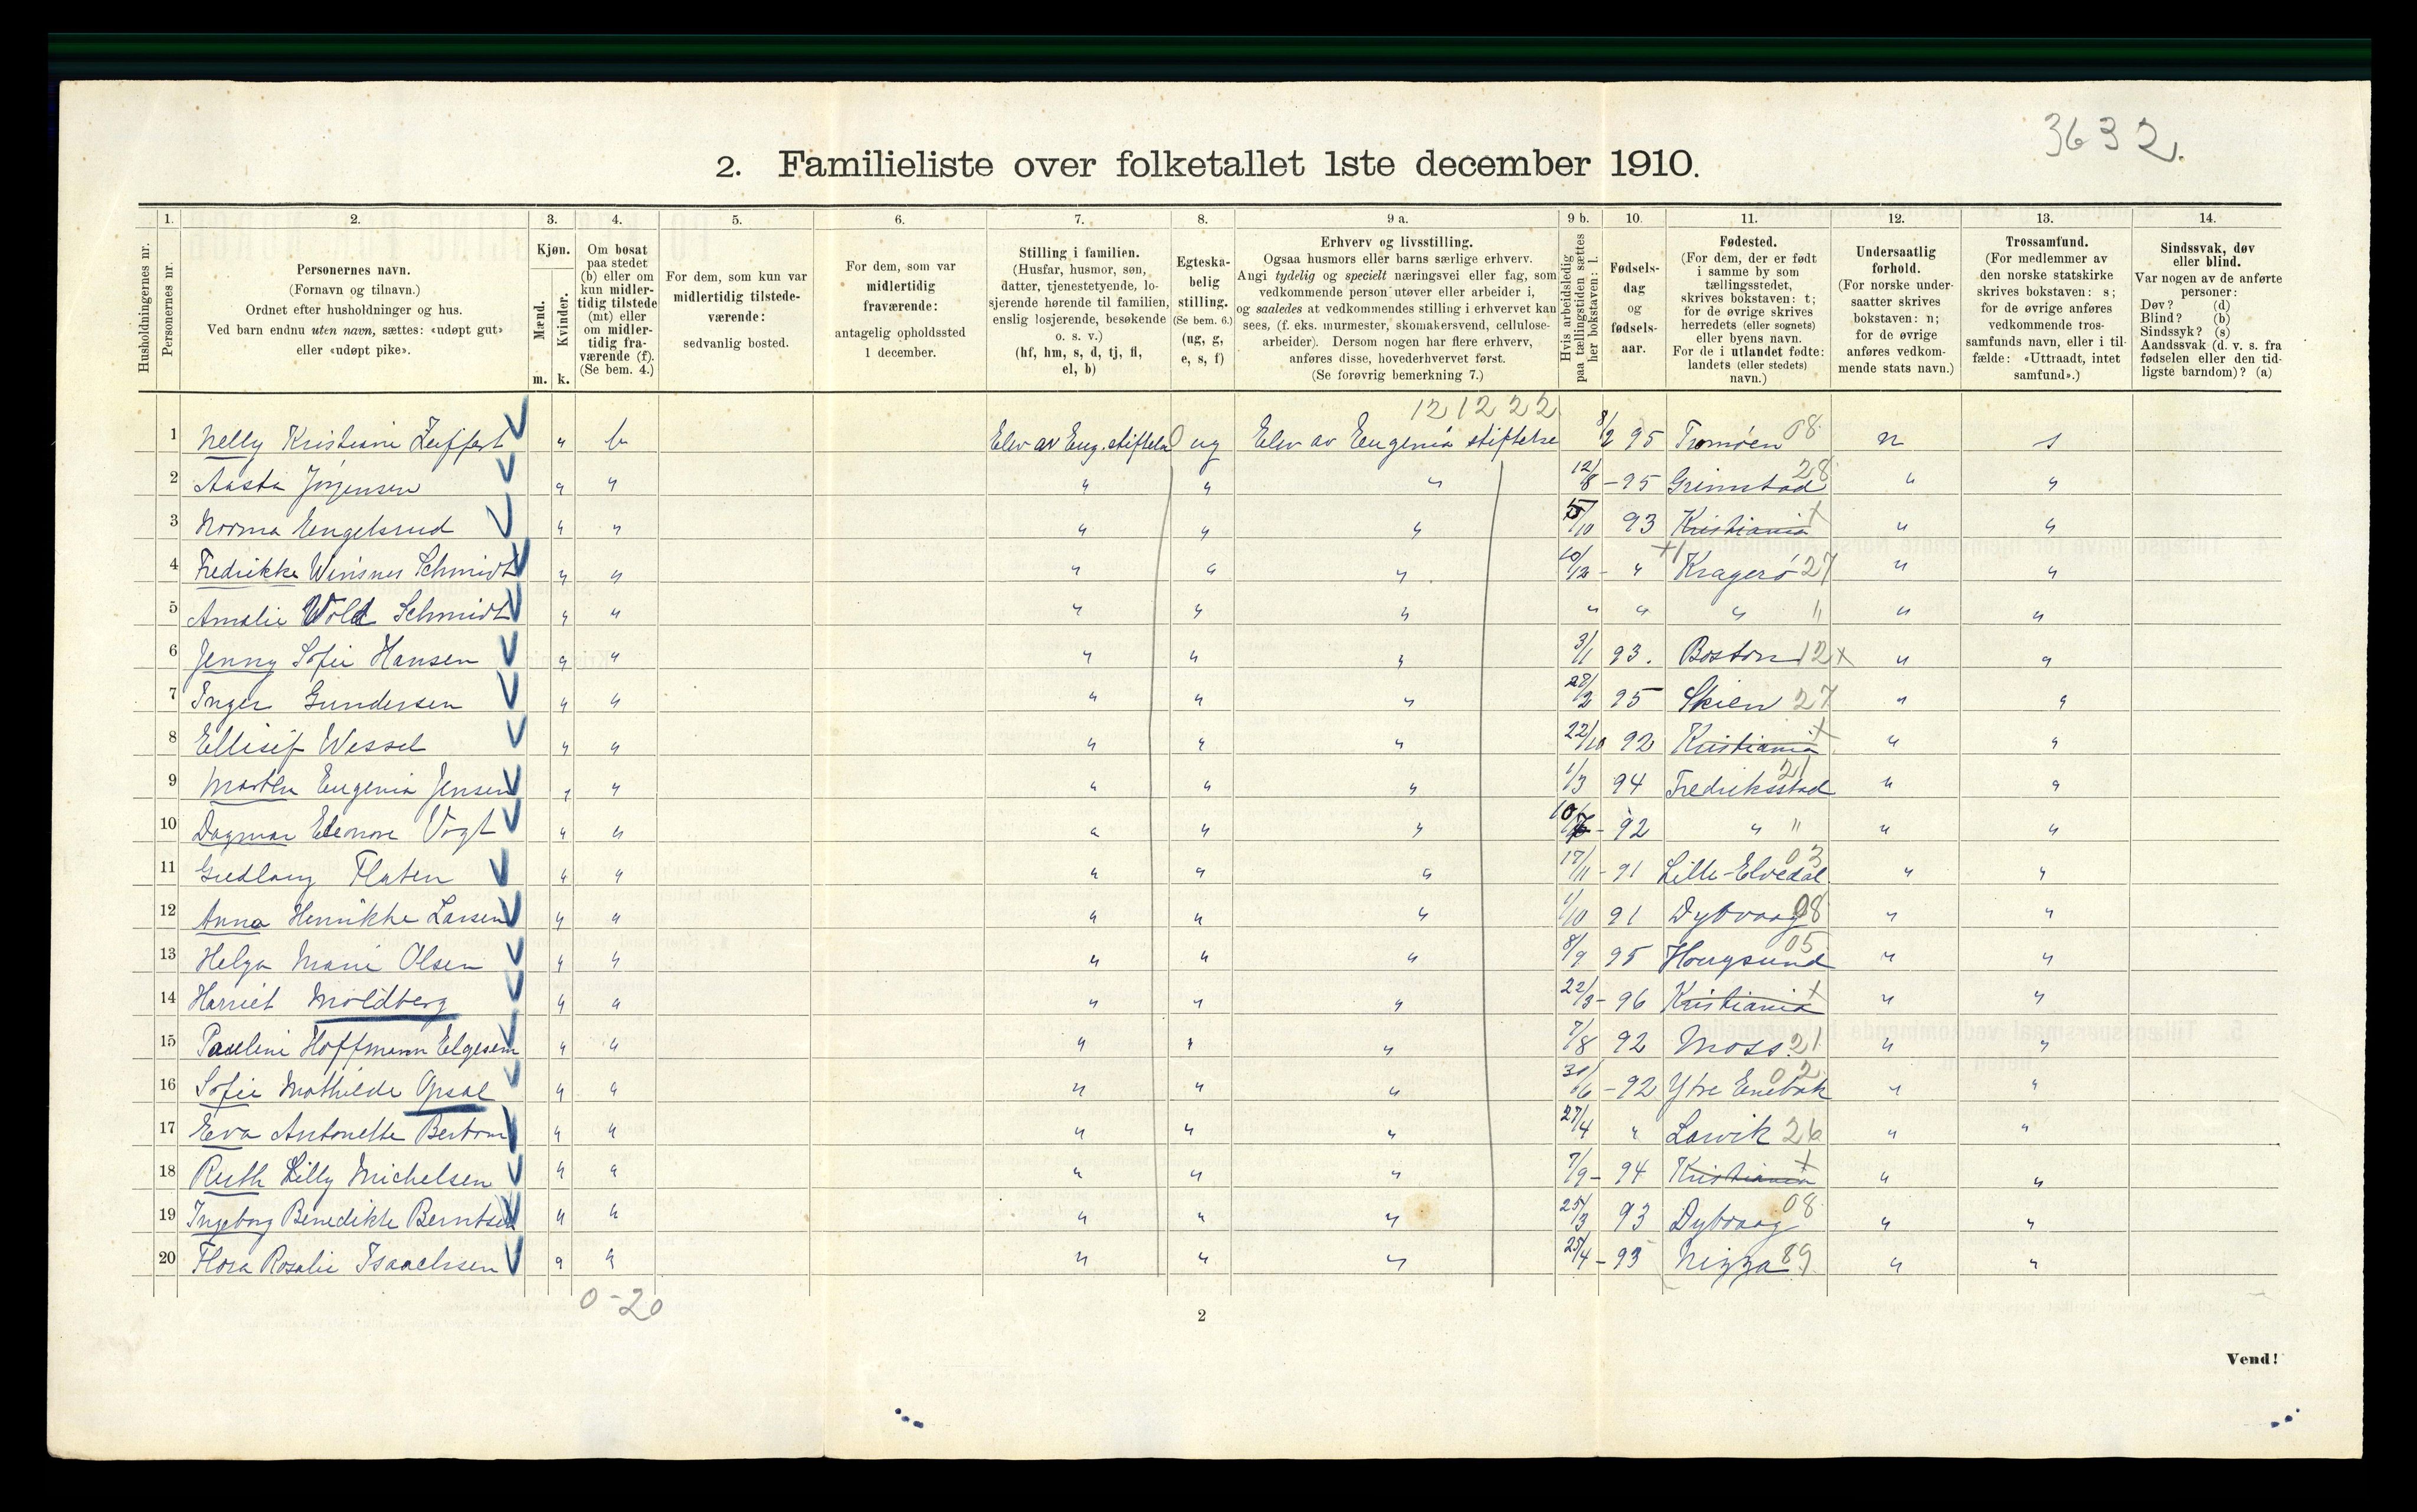 3632.
2. Familieliste over folketallet 1ste december 1910.
Husholdningernes nr.
1. Personernes nr.
2. Personernes navn. (Fornavn og tilnavn.) Ordnet efter husholdninger og hus. Ved barn endnu uten navn, sættes: «udøpt gut» eller «udøpt pike».
3. Kjøn. Mænd. m. Kvinder. k.
4. Om bosat paa stedet (b) eller om kun midlertidig tilstede (mt) eller om midlertidig fraværende (f). (Se bem. 4.)
5. For dem, som kun var midlertidig tilstedeværende: sedvanlig bosted.
6. For dem, som var midlertidig fraværende: antagelig opholdssted 1 december.
7. Stilling i familien. (Husfar, husmor, søn, datter, tjenestetyende, losjerende hørende til familien, enslig losjerende, besøkende o. s. v.) (hf, hm, s, d, tj, fl, el, b)
8. Egteskabelig stilling. (Se bem. 6.) (ug, g, e, s, f)
9 a. Erhverv og livsstilling. Ogsaa husmors eller barns særlige erhverv. Angi tydelig og specielt næringsvei eller fag, som vedkommende person utøver eller arbeider i, og saaledes at vedkommendes stilling i erhvervet kan sees, (f. eks. murmester, skomakersvend, cellulosearbeider). Dersom nogen har flere erhverv, anføres disse, hovederhvervet først. (Se forøvrig bemerkning 7.)
9 b. Hvis arbeidsledig paa tællingstiden sættes her bokstaven: l.
10. Fødselsdag og fødselsaar.
11. Fødested. (For dem, der er født i samme by som tællingsstedet, skrives bokstaven: t; for de øvrige skrives herredets (eller sognets) eller byens navn. For de i utlandet fødte: landets (eller stedets) navn.)
12. Undersaatlig forhold. (For norske undersaatter skrives bokstaven: n; for de øvrige anføres vedkommende stats navn.)
13. Trossamfund. (For medlemmer av den norske statskirke skrives bokstaven: s; for de øvrige anføres vedkommende trossamfunds navn, eller i tilfælde: «Uttraadt, intet samfund».)
14. Sindssvak, døv eller blind. Var nogen av de anførte personer: Døv? (d) Blind? (b) Sindssyk? (s) Aandssvak (d. v. s. fra fødselen eller den tidligste barndom)? (a)
121222
1 Nelly Kristiane " b Elev av Eug. stiftelse ug Elev av Eugenia stiftelse 8/2 95 Tromöen 08 n s
2 Aasta Jörgensen " " " " " 12/8 - 95 Grimstad 28 " "
3 Norma Engelsrud " " " " " 5/10 93 Kristiania + " "
4 Fredrikke Schmidt " " " " " 10/12 - " Kragerö 27 " "
5 Amalie Wold Schmidt " " " " " " " " " " "
6 Jenny Sofie Hansen " " " " " 3/1 93. Boston 12 x " "
7 Inger Gundersen " " " " " 28/2 95 Skien 27 " "
8 Ellisif Wessel " " " " " 22/10 92 Kristiania + " "
9 Martha Eugenia Jensen " " " " " 1/3 94 Fredriksstad 21 " "
10 Dagmar Elenore Vogt " " " " " - 92 " " " "
11 Gudlaug Flaten " " " " " 17/11 - 91 Lille-Elvedal 03 " "
12 Anna Henrikke Larsen " " " " " 1/10 91 Dybvaag 08 " "
13 Helga Marie Olsen " " " " " 8/9 95 Hougsund 05 " "
14 Harriet Moldberg " " " " " 22/3 - 96 Kristiania + " "
15 Pauline Hoffmann Elgesem " " " " " 7/8 92 Moss. 21 " "
16 Sofie Mathilde Opsal " " " " " 30/6 - 92 Ytre Enebak 02 " "
17 Eva Antonette " " " " " 27/4 " Larvik 26 " "
18 Ruth Lilly Michelsen " " " " " 7/9 - 94 Kristiania + " "
19 Ingeborg Benedikte Berntsen " " " " " 25/3 93 Dybvaag 08 " "
20 Flora Rosalie Isaachsen " " " " " 25/4 - 93 Nizza 89 " "
0 - 20
2
Vend!